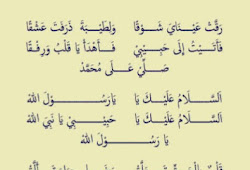 رَقَّتْ عَيْنَايَ شَوْقًا وَلِطَيْبَةَ ذَرَفَتْ عِشْقًا
فَأَتَيْتُ إِلَى حَبِيبِي فَاهْدَأْ يَا قَلْبُ وَرِفْقًا
صَلِّ عَلَى مُحَمَّدْ
اَلسَّلَامُ عَلَيْكَ يَا يَارَسُوْلَ اللهْ
اَلسَّلَامُ عَلَيْكَ يَا حَبِيْبِيْ يَا نَبِيَّ اللهْ
يَا رَسُوْلَ اللهْ